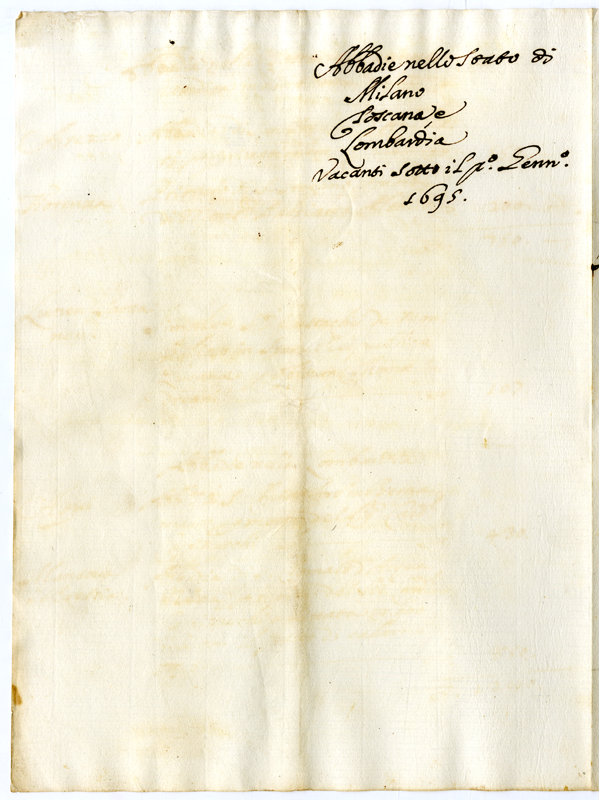 Abbadie nello Stato di
Milano
Toscana e
Lombardia
Vacanti sotto il p.º Genn.º
1695.